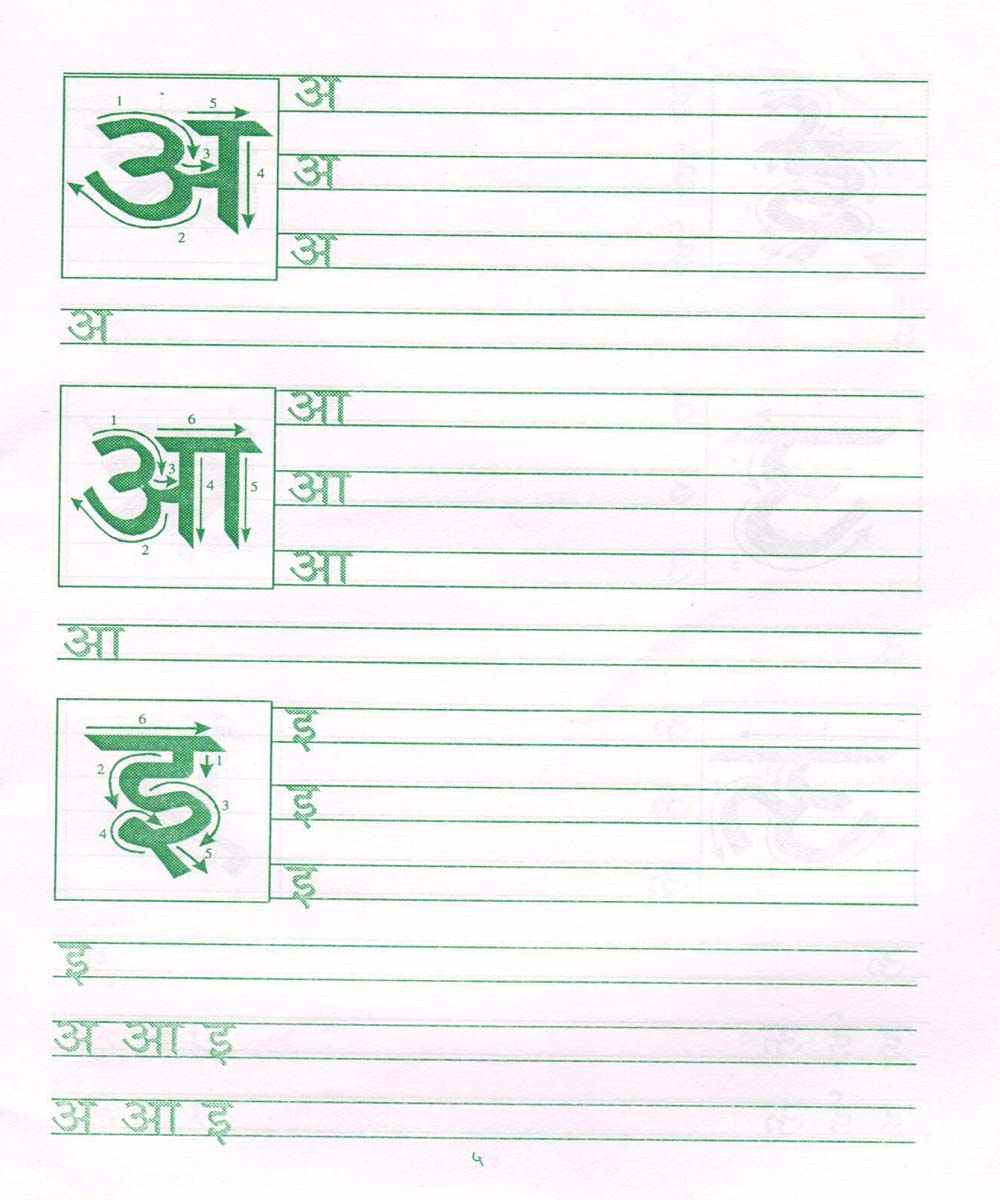 अ
1
5
3
4
2
अ
अ
अ
अ
आ
1
6
3
4
5
2
आ
आ
आ
आ
इ
6
1
2
3
4
5
इ
इ
इ
इ
अ आ इ
अ आ इ
५